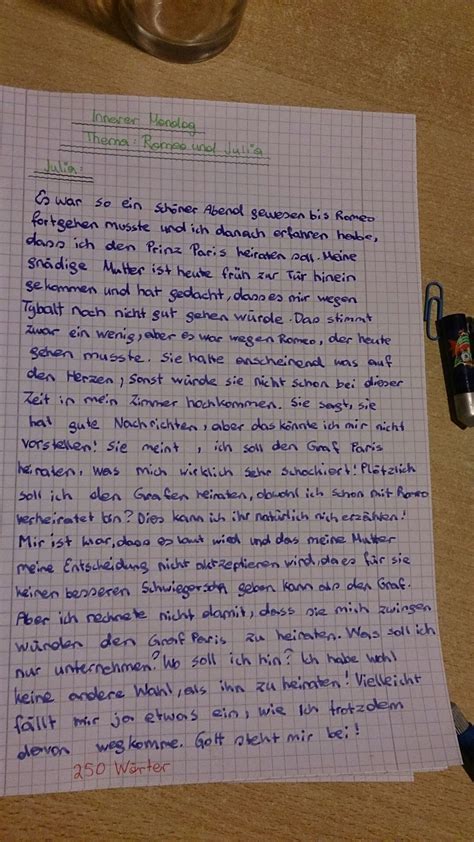 Innerer Monolog
Thema: Romeo und Julia
Julia:
Es war so ein schöner Abend gewesen bis Romeo
fortgehen musste und ich danach erfahren habe,
dass ich den Prinz Paris heiraten soll. Meine
gnädige Mutter ist heute früh zur Tür hinein
gekommen und hat gedacht, dass es mir wegen
Tybalt noch nicht gut gehen würde. Das stimmt
zwar ein wenig, aber es war wegen Romeo, der heute
gehen musste. Sie hatte anscheinend was auf
den Herzen, sonst würde sie nicht schon bei dieser
Zeit in mein Zimmer hochkommen. Sie sagt, sie
hat gute Nachrichten, aber das könnte ich mir nicht
vorstellen! Sie meint, ich soll den Graf Paris
heiraten, was mich wirklich sehr schockiert! Plötzlich
soll ich den Grafen heiraten, obwohl ich schon mit Romeo
verheiratet bin? Dies kann ich ihr natürlich nich erzählen!
Mir ist klar, dass es laut wird und das meine Mutter
meine Entscheidung nicht akzeptieren wird, da es für sie
keinen besseren Schwiegersohn geben kann als den Graf.
Aber ich rechnete nicht damit, dass sie mich zwingen
würden den Graf Paris zu heiraten. Was soll ich
nur unternehmen? Wo soll ich hin? Ich habe wohl
keine andere Wahl, als ihn zu heiraten! Vielleicht
fällt mir ja etwas ein, wie ich trotzdem
davon wegkomme. Gott steht mir bei!
250 Wörter